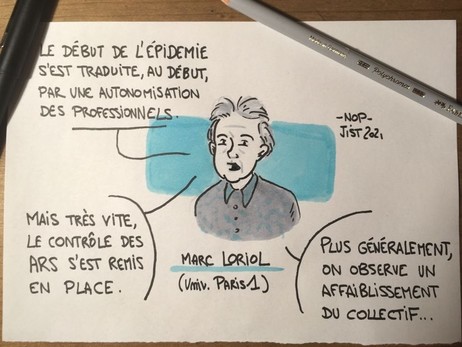 LE DÉBUT DE L'ÉPIDEMIE
S'EST TRADUITE, AU DÉBUT,
PAR UNE AUTONOMISATION
DES PROFESSIONNELS.
-NOP-
JIST 2021
MAIS TRÈS VITE,
LE CONTRÔLE DES
ARS S'EST REMIS
EN PLACE.
MARC LORIOL
(UNIV. PARIS 1)
PLUS GÉNÉRALEMENT,
ON OBSERVE UN
AFFAIBLISSEMENT
DU COLLECTIF...